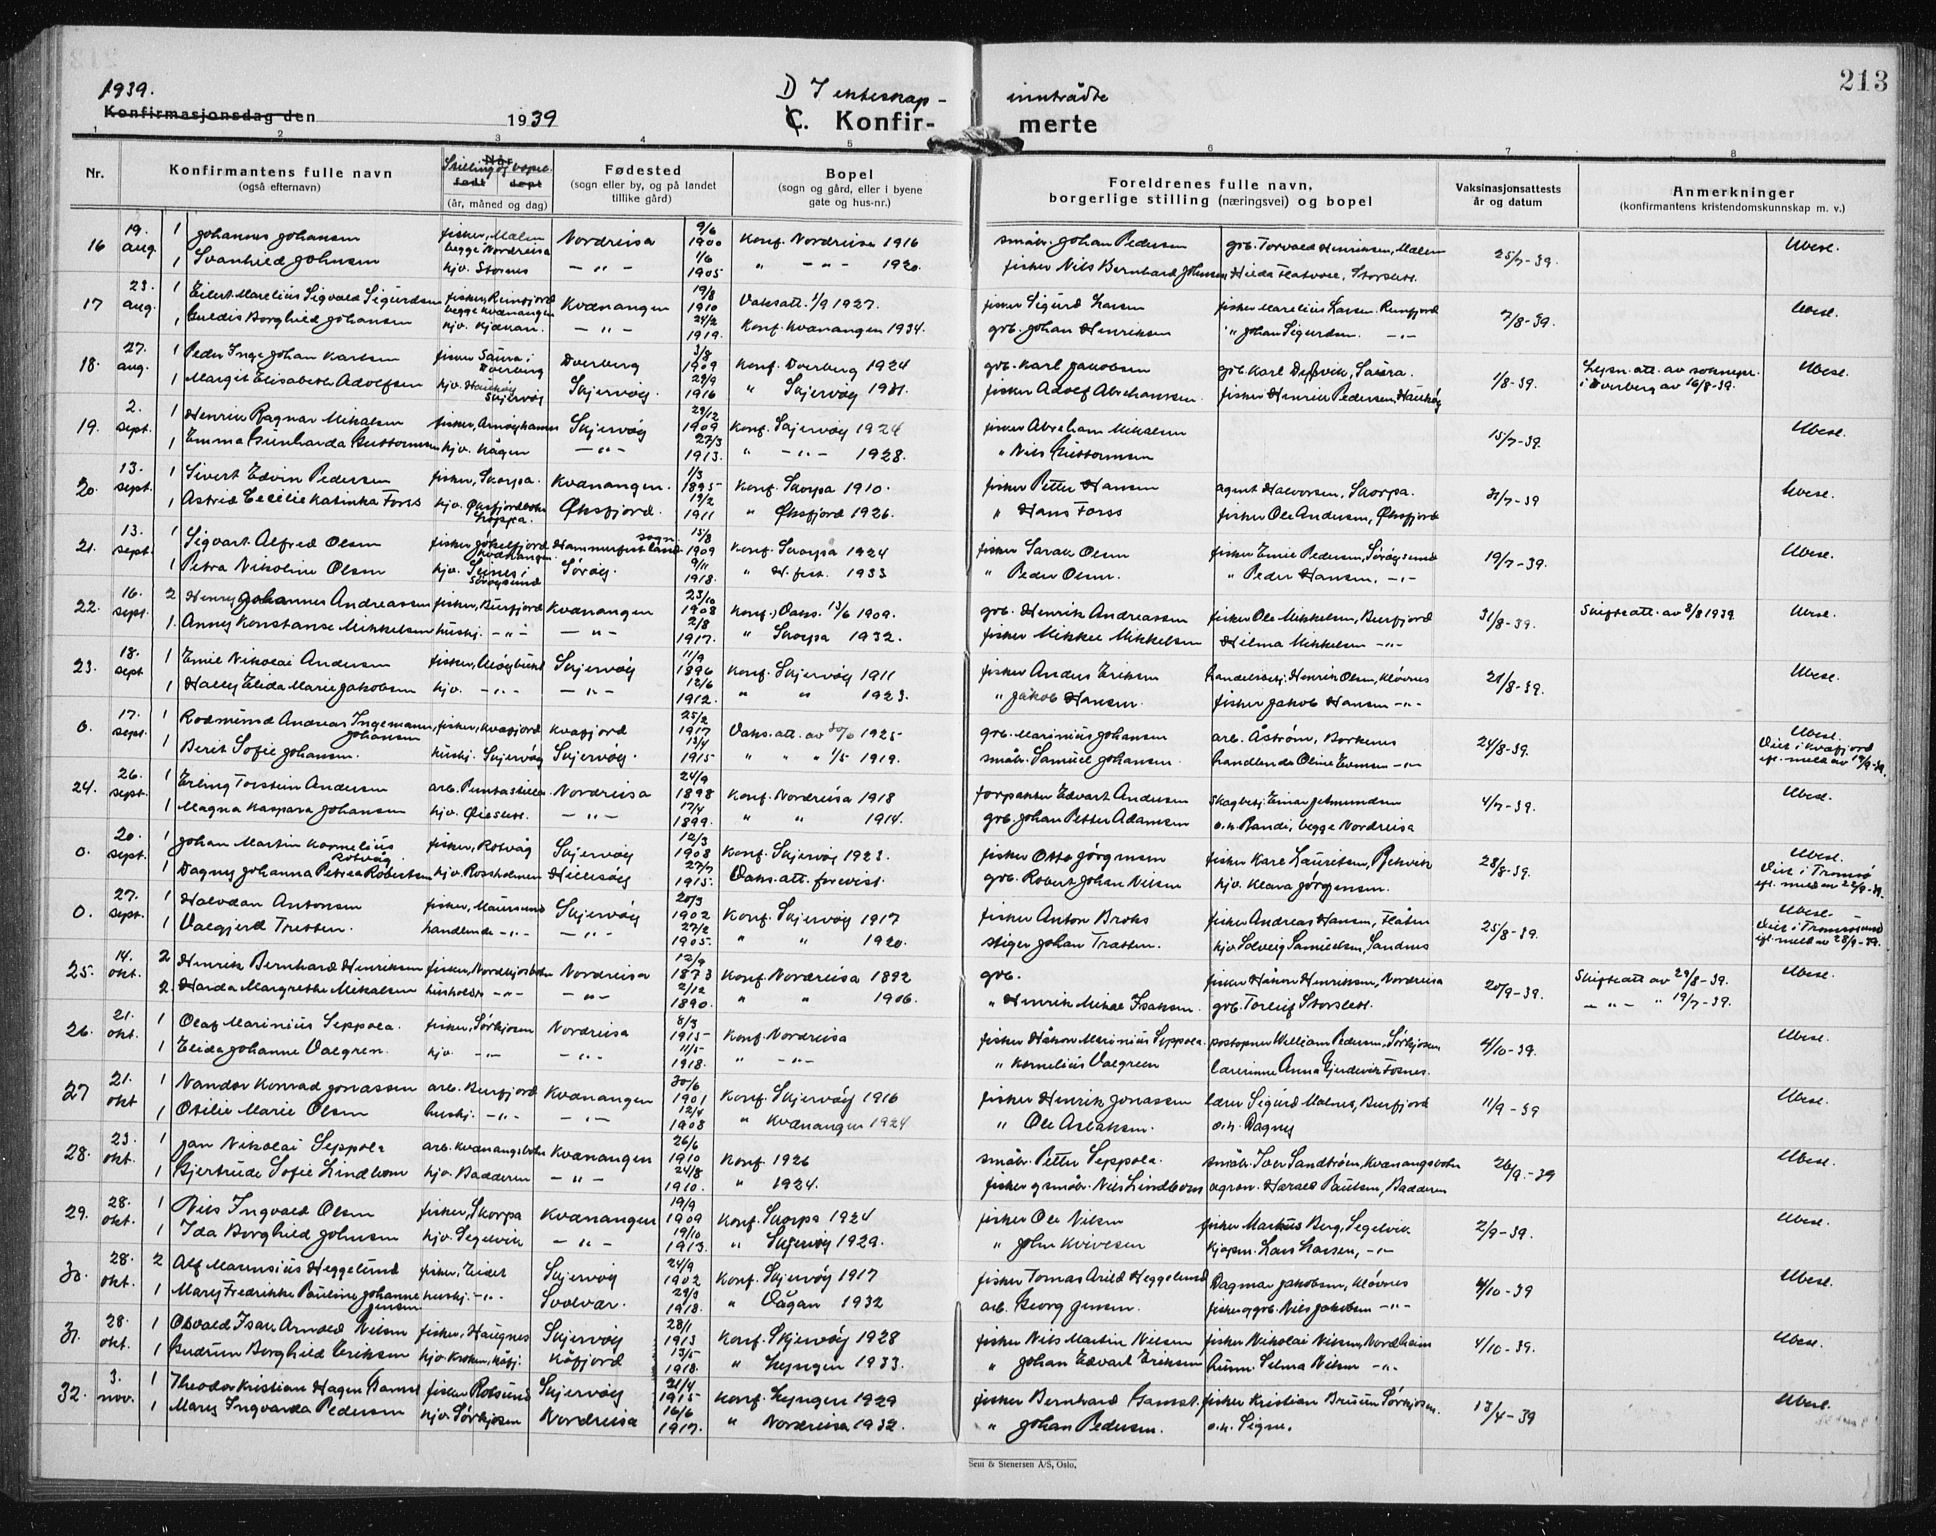 213
1939.
Konfirmasjonsdag den 1939
D I ekteskap - inntrådte
C. Konfir- merte
1 2 3 4 5 6 7 8
Nr.
Konfirmantens fulle navn
(også efternavn)
Når
Stilling og bopel
født døpt
(år, måned og dag)
Fødested
(sogn eller by, og på landet
tillike gård)
Bopel
(sogn og gård, eller i byene
gate og hus-nr.)
Foreldrenes fulle navn,
borgerlige stilling (næringsvei) og bopel
Vaksinasjonsattests
år og datum
Anmerkninger
(konfirmantens kristendomskunnskap m. v.)
16 19. aug. 1 Johannes Johansen fisker, Malen begge Nordreisa Nordreisa 9/6 1900 Konf. Nordreisa 1916 småbr. Johan Pedersen grb. Torvald Henriksen, Malen 25/7-39. Ubesl.
1 Svanhild Johnsen hjv. Stornes — " — 1/6 1905 " — " — 1920. fisker Nils Bernhard Johnsen Hilda Flatvoll, Storslett.
17 23. aug. 1 Eilert Marelius Sigvald Sigurdsen fisker, Reinfjord begge Kvænangen Kvænangen 19/8 1910 Vaksatt. 1/9 1927. fisker Sigurd Larsen fisker Marelius Larsen. Reinfjord 7/8-39. Ubesl.
1 Guldis Borghild Johansen hjv. — " — 24/2 1919. Konf. Kvænangen 1934. grb. Johan Henriksen " Johan Sigurdsen. — " —
18. 27. aug. 1 Peder Inge Johan Karlsen fisker Saura i Dverberg Dverberg 3/8 1909 Konf. Dverberg 1924 grb. Karl Jakobsen grb. Karl Saura. 1/8-39. Lysn. att. av sokneprr. i Dverberg av 16/8-39. Ubesl.
1 Margit Elisabeth Adolfsen hjv. Haukøy Skjervøy Skjervøy. 29/9 1916 " Skjervøy 1931. fisker Adolf Abrahamsen. fisker Henrik Pedersen, Haukøy
19. 2. sept. 1 Henrik Ragnar Mikalsen fisker, Arnøyhamn Skjervøy 29/12 1909 Konf. Skjervøy 1924 fisker Abraham Mikalsen 15/7-39. Ubesl.
1 Emma Gunharda Guttormsen hjv. Kågen — " — 27/3 1913. " — " — 1928. " Nils Guttormsen
20. 13. sept. 1 Sivert Edvin Pedersen fisker, Skorpa. Kvænangen. 1/3 1895 Konf. Skorpa 1910. fisker Petter Hansen agent Halvorsen, Skorpa. 31/7-39 Ubesl.
1 Astrid Cecilie Katinka Forss hjv. Øksfjordbotn Loppa. Øksfjord. 19/2 1911 " Øksfjord 1926. " Hans Forss fisker Ole Andersen, Øksfjord
21. 13. sept. 1 Sigvart Alfred Olsen fisker Jøkelfjord Kvænangen Hammerfest landsogn 15/8 1909 Konf. Skorpa 1924 fisker Sarak Olsen fisker Emil Pedersen, Sørøysund 19/7-39. Ubesl.
1 Petra Nikoline Olsen hjv. Seines i Sørøysund Sørøy. 9/11 1918. " H.fest. 1933 " Peder Olsen. " Peder Hansen. — " —
22. 16. sept. 2 Henry Johannes Andreassen fisker, Burfjord Kvænangen 23/10 1908 Konf., Vaks. 13/6 1909. grb. Henrik Andreassen fisker Ole Mikkelsen, Burfjord 31/8-39. Skifteatt. av 8/8 1939. Ubesl.
1. Anny Konstanse Mikkelsen hushj. — " — — " — 2/8 1917. " Skorpa 1932. fisker Mikkel Mikkelsen Hilma Mikkelsen — " —
23. 18. sept 1 Emil Nikolai Andersen fisker, Skjervøy 11/9 1896 Konf. Skjervøy 1911 fisker Anders Eriksen handelsbetj. Henrik Olsen, Kløvnes 21/8-39. Ubesl.
1 Hally Elida Marie Jakobsen hjv. — " — — " — 12/6 1912. " " 1923. " Jakob Hansen. fisker Jakob Hansen — " —
0. 17. sept. 1 Rodmund Andreas Ingemann Johansen fisker, Kvæfjord Kvæfjord 25/2 1917 Vaks. att. av 30/6 1925 grb. Marinius Johansen arb. Åstrøm, Borkenes 24/8-39. Ubesl. Viet i Kvæfjord efl. meld av 19/9-39.
1 Berit Sofie Johansen. hushj. Skjervøy Skjervøy. 13/4 1915 " " " 1/5 1919. småbr. Samuel Johansen. handlende Oline Evensen — " —
24. 26. sept. 1 Erling Torstein Andersen arb. Nordreisa 24/9 1898 Konf. Nordreisa 1918 forpakter Edvart Andersen skogbetj. Einar Jetmundsen 4/7-39. Ubesl.
1 Magna Kaspara Johansen hjv. — " — 17/4 1899. " " 1914. grb. Johan Petter Adamsen o.h. Randi, begge Nordreisa
0. 20. sept. 1 Johan Martin Kornelius Rotvåg fisker, Rotvåg Skjervøy 12/3 1908 Konf. Skjervøy 1923. fisker Otto Jørgensen fisker Karl Lauritsen, Rekvik 28/8-39. Ubesl. Viet i Tromsø efl. meld av 22/9-39.
1 Dagny Johanna Petrea Robertsen hjv. Rossholmen Hillesøy 27/7 1915. Vaks. att. forevist. grb. Robert Johan Nilsen hjv. Klara Jørgensen.
0. 27. sept. 1 Halvdan Antonsen fisker, Maursund Skjervøy 20/3 1902 Konf. Skjervøy 1917 fisker Anton Broks fisker Andreas Hansen, Flåten 25/8-39. Ubesl. Viet i Tromsøsund efl. meld av 28/9-39.
1 Valgjerd Tretten. handlende — " — — " — 27/2 1905. " " 1920. stiger Johan Trætten. hjv. Solveig Samuelsen, Sandnes
25. 14. okt. 2 Henrik Bernhard Henriksen fisker, Nordkjosbotn Nordreisa 12/9 1873 Konf. Nordreisa 1892 grb. fisker Håkon Henriksen, Nordreisa 20/9-39. Skifteatt av 29/8-39. Ubesl.
2. Harda Margrethe Mikalsen husholder — " — — " — 2/12 1890. " " 1906. " Henrik Mikal Isaksen. grb. Torleif Storslett. — " — " 19/7-39.
26. 21. okt. 1 Olaf Marinius Seppola. fisker, Sørkjosen Nordreisa 8/3 1915 Konf. Nordreisa fisker Håkon Marinius Seppola. postopner William Pedersen, Sørkjosen 4/10-39. Ubesl.
1 Elida Johanne Valgren. hjv. — " — — " — 11/5 1918. " — " — " Kornelius Valgreen lærerinne Anna Gjerdevik Fosnes.
27 21. okt 1 Nandor Konrad Jonassen arb. Burfjord Kvænangen 30/6 1901 Konf. Skjervøy 1916 fisker Henrik Jonassen lærer Sigurd Malnes, Burfjord 11/9-39 Ubesl.
1 Otilie Marie Olsen hushj. — " — — " — 12/4 1908 " Kvænangen 1924 " Ole Aslaksen. o.h. Dagny
28. 23. okt. 1 Jan Nikolai Seppola arb. Kvænangsbotn Kvænangen 26/6 1910 Konf. 1926 småbr. Petter Seppola. småbr. Iver Sandtrøen, Kvænangsbotn 26/9.-39 Ubesl.
1 Gjertrude Sofie Lindbom hjv. Badderen — " — 24/8 1910. " 1924. fisker og småbr. Nils Lindbom agron. Harald Paulsen, Badderen
29. 28. okt. 1 Nils Ingvald Olsen fisker, Skorpa Kvænangen 19/9 1909 Konf. Skorpa 1924 fisker Ole Nilsen fisker Markus Berg, Segelvik 2/9-39. Ubesl.
1 Ida Borghild Johnsen hjv. Segelvik — " — 19/10 1913. " Skjervøy 1929. " John Kvivesen kjøpm. Lars Larsen, — " —
30. 28. okt. 2 Alf Marensius Heggelund fisker, Eidet Skjervøy 24/9 1902 Konf. Skjervøy 1917 fisker Tomas Arild Heggelund Dagmar Jakobsen, Kløvnes 4/10-39 Ubesl.
1 Mary Fredrikke Pauline Johanne Jensen hushj. — " — Svolvær. 29/3 1918. " Vågan 1932 arb. Georg Jensen. fisker og grb. Nils Jakobsen — " —
31. 28. okt. 1 Osvald Isak Arnold Nilsen fisker, Haugnes Skjervøy 28/1 1913 Konf. Skjervøy 1928 fisker Nils Martin Nilsen fisker Nikolai Nilsen, Nordheim 4/10-39. Ubesl.
1 Gudrun Borghild Eriksen hjv. Kroken, Kåfj. Kåfjord 13/5 1918. " Lyngen 1933. " Johan Edvart Eriksen husm. Selma Nilsen — " —
32. 3. nov. 1 Theodor Kristian Hagen Hamst fisker Rotsund Skjervøy 21/4 1915 Konf. Lyngen 1929 fisker Bernhard Hamst. fisker Kristian Bruun Sørkjosen. 13/4-39 Ubesl.
1 Mary Ingvarda Pedersen hjv. Sørkjosen Nordreisa 16/6 1917. " Nordreisa 1932. " Johan Pedersen. o.h. Signe.
Sem & Stenersen A/S, Oslo.